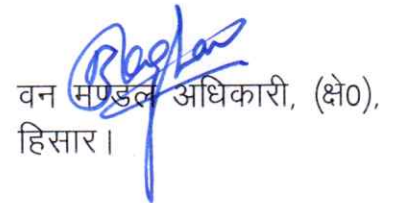 वन मण्डल अधिकारी, (क्षे0),
हिसार।